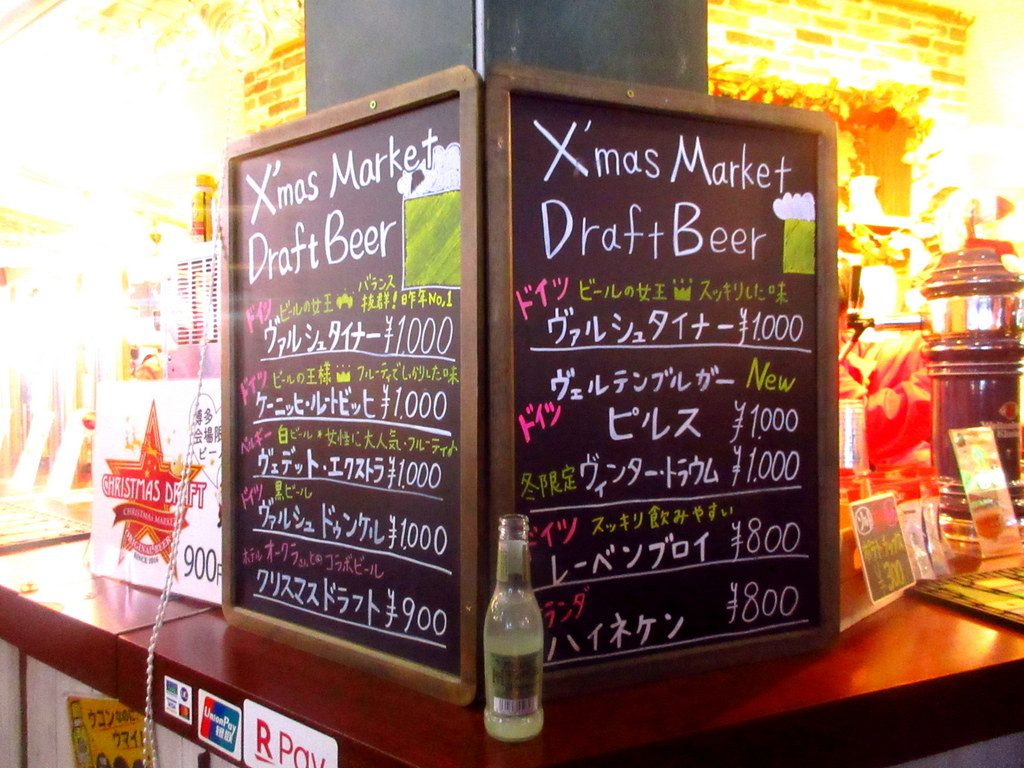 X'mas Market
Draft Beer
ドイツ ビールの女王 バランス抜群!昨年No.1
ヴァルシュタイナー ¥1,000
ドイツ ビールの王様 フルーティでしっかりした味
ケーニッヒ・ルートビッヒ ¥1,000
ベルギー 白ビール*女性に大人気・フルーティ♪
ヴェデット・エクストラ ¥1,000
ドイツ 黒ビール
ヴァルシュドゥンケル ¥1,000
ホテルオークラさんとのコラボビール
クリスマスドラフト ¥900
X'mas Market
Draft Beer
ドイツ ビールの女王 スッキリした味
ヴァルシュタイナー ¥1,000
ヴェルテンブルガー New
ドイツ ピルス ¥1,000
冬限定 ヴィンタートラウム ¥1,000
ドイツ スッキリ飲みやすい
レーベンブロイ ¥800
ランダ
ハイネケン ¥800
博多
会場限
ビー
CHRISTMAS DRAFT
CHRISTMAS MARKET
900
UnionPay
银联
R Pay
ウコンなのに
ウマイ
300